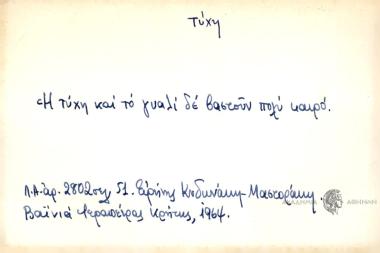 τύχη
Ἡ τύχη καὶ τό γυαλί δέ βαστοῦν πολύ καιρό.
Λ.Α. ἀρ. 2802 σελ. 51. Εἰρήνης Κυδωνάκη-Μαστοράκη
Βαϊνιά Ἱεραπέτρας Κρήτης, 1964.
ΑΚΑΔΗΜΙΑ ΑΘΗΝΩΝ